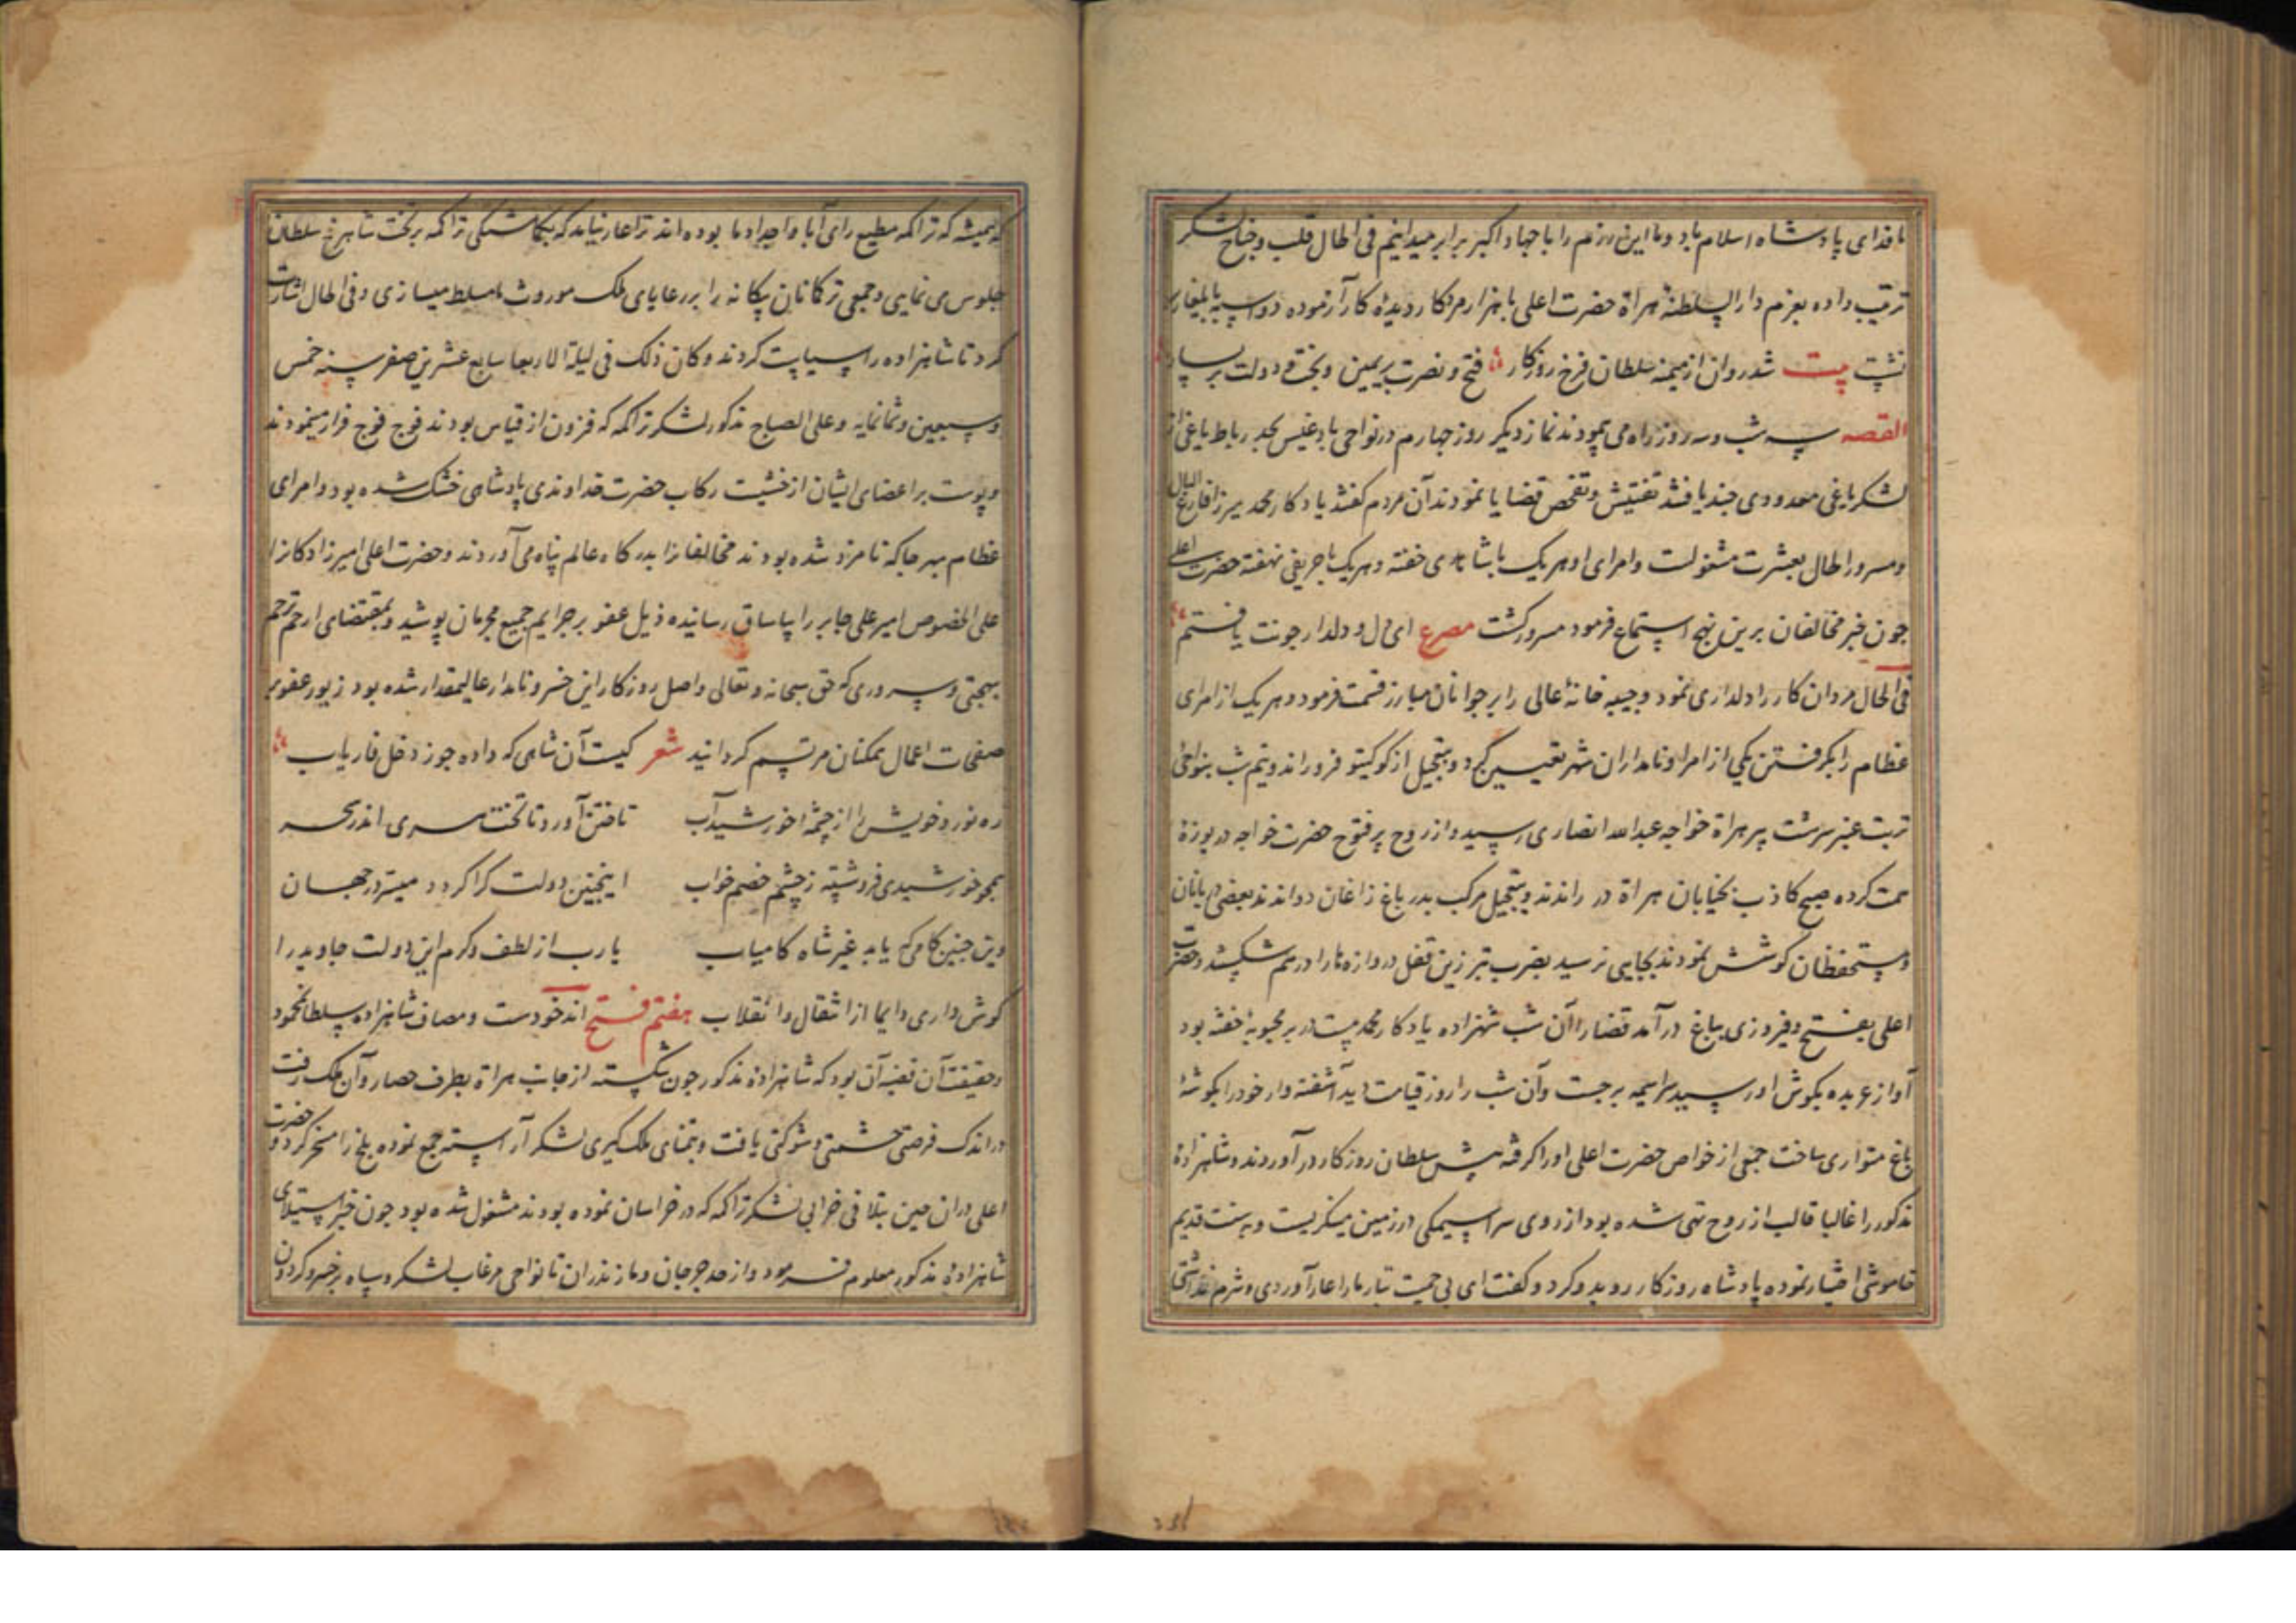 ما فدای پادشاه اسلام باد و ما این رزم را با جهاد اکبر برابر میدانیم فی الحال قلب و جناح لشکر
ترتیب داده بعزم دار السلطنة هراة حضرت اعلی با هزار مرد کار دیدۀ کار آزموده دو اسپه بایلغار
بیت شد روان از میمنه سلطان فرخ روزکار فتح و نصرت بر یمین و بخت و دولت بر یسار
القصه سه شب و سه روز راه می پیمودند نماز دیکر روز چهارم در نواحی بادغیس بحد رباط یاغی از
لشکر یاغی معدودی چند یافتند تفتیش و تفحص قضایا نمودند آن مردم کفتند یادکار محمد میرزا فارغ البال
و مسرور الحال بعشرت مشغولست و امرای او هر یک با شاهدی خفته و هر یک با حریفی نهفته حضرت اعلی
چون خبر مخالفان برین نهج استماع فرمود مسرور کشت مصرع ای دل و دلدار چونت یافتم
فی الحال مردان کار را دلداری نمود و جیبه خانۀ عالی را بر جوانان مبارز قسمت فرمود و هر یک از امرای
عظام را بکرفتن یکی از امرا و نامداران شهر تعیین کرد و بتعجیل از کوکیتو فرو راند و نیم شب بنواحی
تربت عنبر سرشت پیر هراة خواجه عبد الله انصاری رسید و از روح پر فتوح حضرت خواجه دریوزۀ
همت کرده صبح کاذب بخیابان هراة در راندند و بتعجیل مرکب بدر باغ زاغان دواندند بعضی دربانان
و مستحفظان کوشش نمودند بجایی نرسید بضرب تبرزین قفل دروازه‌ها را درهم شکستند و حضرت
اعلی بفتح و فیروزی بباغ در آمد قضا را آن شب شهزاده یادکار محمد مست در بر محبوبۀ خفته بود
آواز عربده بکوش او رسید سراسیمه بر جست و آن شب را روز قیامت دید آشفته وار خود را بکوشۀ
باغ متواری ساخت جمعی از خواص حضرت اعلی او را کرفته پیش سلطان روزکار در آوردند و شاهزادۀ
مذکور را غالبا قالب از روح تهی شده بود از روی سراسیمکی در زمین مینکریست و بر سنت قدیم
خاموشی اختیار نموده پادشاه روزکار رو بدو کرد و کفت ای بی حمیت تبار ما را عار آوردی و شرم نداشتی
که همیشه که تراکمه مطیع رای آبا و اجداد ما بوده اند ترا عار نیامد که بکماشتکی تراکمه بر تخت شاهرخ سلطان
جلوس می نمایی و جمعی ترکمانان بیکانه را بر رعایای ملک موروث ما مسلط میسازی و فی الحال اشارت
کرد تا شاهزاده را سیاست کردند و کان ذلک فی لیلة الاربعا سابع عشرین صفر سنه خمس
و سبعین و ثمانمایه و علی الصباح مذکور لشکر تراکمه که فزون از قیاس بودند فوج فوج فرار مینمودند
و پوست بر اعضای ایشان از خشیت رکاب حضرت خداوندی پادشاهی خشک شده بود و امرای
عظام بهر جا که نامزد شده بودند مخالفانرا بدرکاه عالم پناه می آوردند و حضرت اعلی امیرزادکانرا
علی الخصوص امیر علی جابر را بیاساق رسانیده ذیل عفو بر جرایم جمیع مجرمان پوشید و بمقتضای ارحم ترحم
بهجتی و سروری که حق سبحانه و تعالی واصل روزکار این خسرو نامدار عالیمقدار شده بود زیور عفو بر
صفحات اعمال همکنان مرتسم کردانید شعر کیست آن شاهی که داده جوز دخل فاریاب
ره نورد خویش را از چشمۀ خورشید آب تاختن آورد تا تخت هری اندر سحر
همچو خورشیدی فرو شسته ز چشم خصم خواب اینچنین دولت کرا کردد میسر در جهان
وین چنین کامی که یابد غیر شاه کامیاب یا رب از لطف و کرم این دولت جاوید را
کوش داری دایما از انتقال و انقلاب هفتم فتح اندخودست و مصاف شاهزاده سلطان محمود
و حقیقت آن قضیه آن بود که شاهزادۀ مذکور چون شکسته از جانب هراة بطرف حصار و آن ملک رفت
در اندک فرصتی حشمتی و شوکتی یافت و بتمنای ملک کیری لشکر آراسته جمع نموده بلخ را مسخر کرد و حضرت
اعلی در ان حین بتلافی خرابی لشکر تراکمه که در خراسان نموده بودند مشغول شده بود چون خبر استیلای
شاهزادۀ مذکور معلوم فرمود و از حد جرجان و مازندران تا نواحی مرغاب لشکر و سپاه بر خسرو کردون